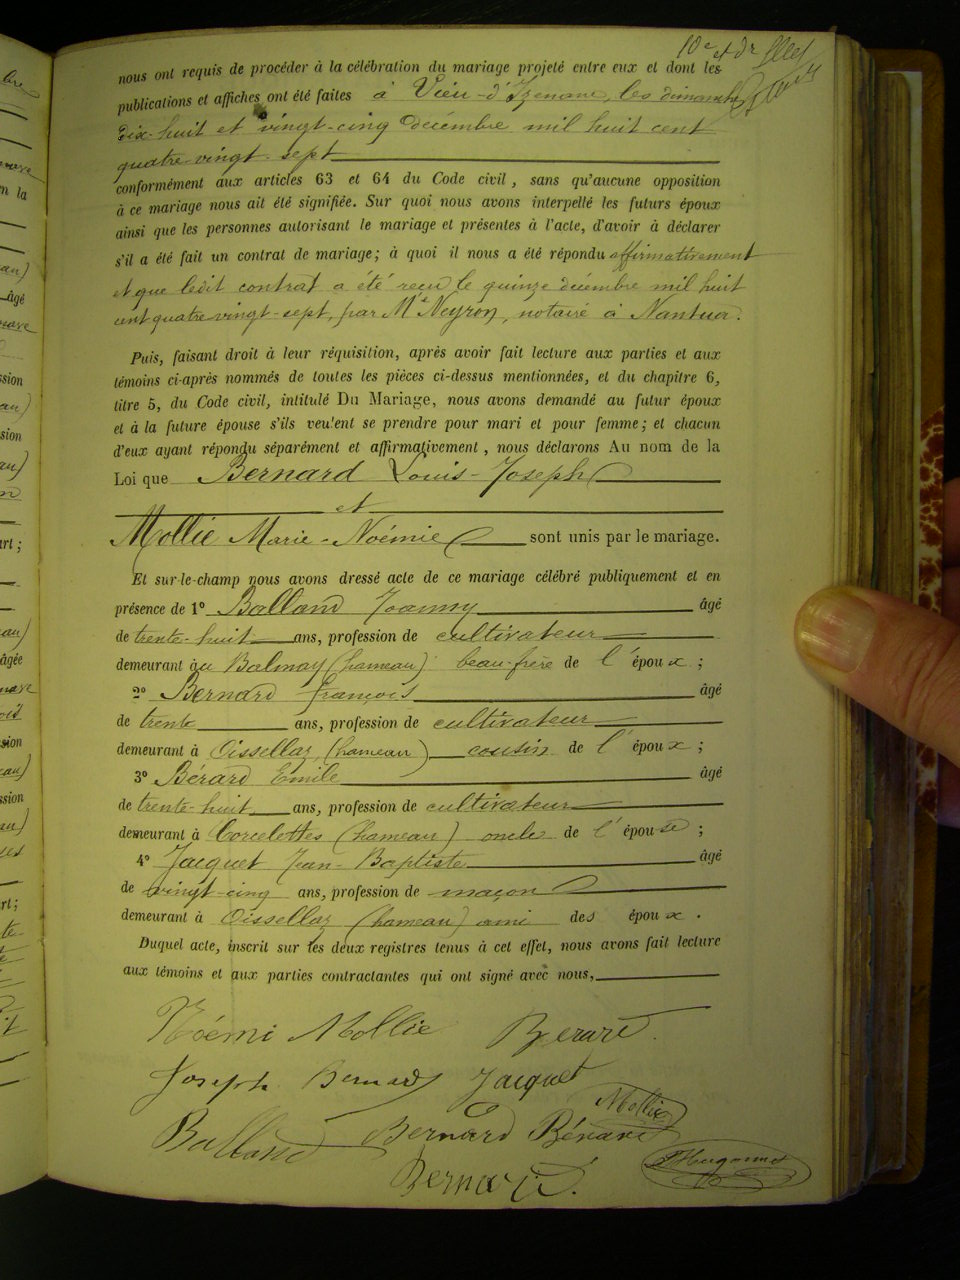 10e et dr
nous ont requis de procéder à la célébration du mariage projeté entre eux et dont les
publications et affiches ont été faites à Vieu-d'Izenave, les dimanches
dix-huit et vingt-cinq décembre mil huit cent
quatre-vingt-sept
conformément aux articles 63 et 64 du Code civil, sans qu'aucune opposition
à ce mariage nous ait été signifiée. Sur quoi nous avons interpellé les futurs époux
ainsi que les personnes autorisant le mariage et présentes à l'acte, d'avoir à déclarer
s'il a été fait un contrat de mariage; à quoi il nous a été répondu affirmativement
et que ledit contrat a été reçu le quinze décembre mil huit
cent quatre-vingt-sept, par Me Neyron, notaire à Nantua.
Puis, faisant droit à leur réquisition, après avoir fait lecture aux parties et aux
témoins ci-après nommés de toutes les pièces ci-dessus mentionnées, et du chapitre 6,
titre 5, du Code civil, intitulé Du Mariage, nous avons demandé au futur époux
et à la future épouse s'ils veulent se prendre pour mari et pour femme; et chacun
d'eux ayant répondu séparément et affirmativement, nous déclarons Au nom de la
Loi que Bernard Louis-Joseph
et
Mollie Marie-Noémie sont unis par le mariage.
Et sur-le-champ nous avons dressé acte de ce mariage célébré publiquement et en
présence de 1º Balland Joanny âgé
de trente-huit ans, profession de cultivateur
demeurant au Balmay (hameau) beau-frère de l'époux;
2º Bernard françois âgé
de trente ans, profession de cultivateur
demeurant à Oissellaz (hameau) cousin de l'époux;
3º Bérard Emile âgé
de trente-huit ans, profession de cultivateur
demeurant à Corcelettes (hameau) oncle de l'épouse;
4º Jacquet Jean-Baptiste âgé
de vingt-cinq ans, profession de maçon
demeurant à Oissellaz (hameau) ami des époux.
Duquel acte, inscrit sur les deux registres tenus à cet effet, nous avons fait lecture
aux témoins et aux parties contractantes qui ont signé avec nous,
Noémi Mollie Berard
Joseph Bernard Jacquet
Mollie
Balland Bernard Bérard
Bernard
Hugonnet